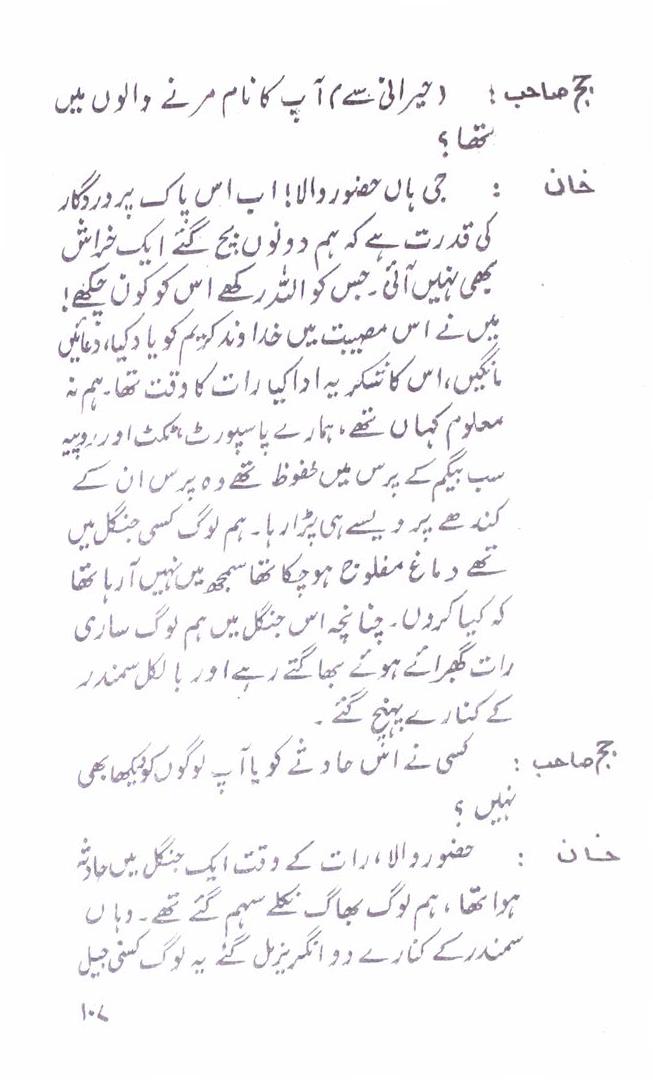 جج صاحب : (حیرانی سے) آپ کا نام مرنے والوں میں
تھا ؟
خان : جی ہاں حضور والا! اب اس پاک پروردگار
کی قدرت ہے کہ ہم دونوں بچ گئے ایک خراش
بھی نہیں آئی۔ جس کو اللہ رکھے اس کو کون چکھے!
میں نے اس مصیبت میں خداوند کریم کو یاد کیا، دعائیں
مانگیں، اس کا شکریہ ادا کیا رات کا وقت تھا۔ ہم نہ
معلوم کہاں تھے، ہمارے پاسپورٹ، ٹکٹ اور روپیہ
سب بیگم کے پرس میں محفوظ تھے وہ پرس ان کے
کندھے پر ویسے ہی پڑا رہا۔ ہم لوگ کسی جنگل میں
تھے دماغ مفلوج ہو چکا تھا سمجھ میں نہیں آ رہا تھا
کہ کیا کروں۔ چنانچہ اس جنگل میں ہم لوگ ساری
رات گھبرائے ہوئے بھاگتے رہے اور بالکل سمندر
کے کنارے پہنچ گئے۔
جج صاحب : کسی نے اس حادثے کو یا آپ لوگوں کو دیکھا بھی
نہیں ؟
خان : حضور والا، رات کے وقت ایک جنگل میں حادثہ
ہوا تھا، ہم لوگ بھاگ نکلے سہم گئے تھے۔ وہاں
سمندر کے کنارے دو انگریز مل گئے یہ لوگ کسی جیل
۱۰۷